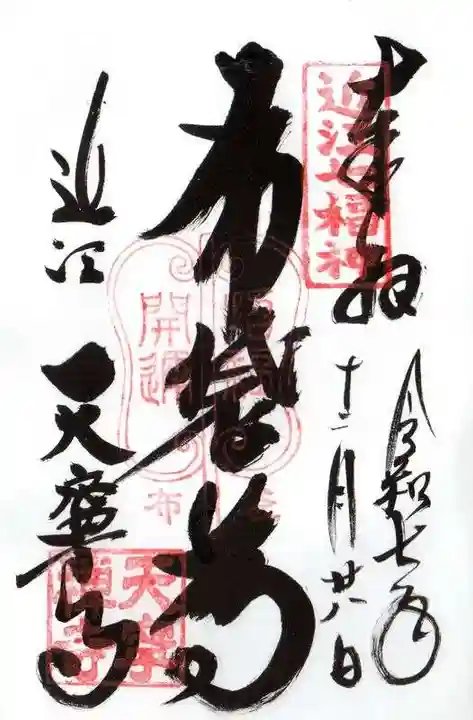 奉拝
近江七福神
令和七年
十二月廿八日
布袋尊
招福
開運
布
近江
天寧寺
天寧
禅寺